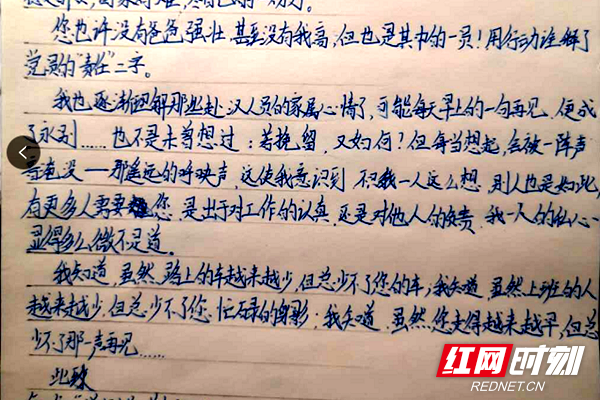 您也许没有爸爸强壮,甚至没有我高,但也是其中的一员!用行动诠释了
党员的“责任”二字。
我也逐渐理解那些赴汉人员的家属心情了,可能每天早上的一句再见,便成
了永别……也不是未曾想过:若挽留,又如何?但每当想起,会被一阵声
音淹没——那遥远的呼唤声,这使我意识到不只我一人这么想,别人也是如此,
有更多人需要您,是出于对工作的认真,还是对他人的负责,我一人的私心
显得多么微不足道。
我知道,虽然路上的车越来越少,但总少不了您的车;我知道,虽然上班的人
越来越少,但总少不了您忙碌的身影;我知道,虽然您走得越来越早,但总
少不了那一声再见……
此致
红网时刻
REDNET.CN